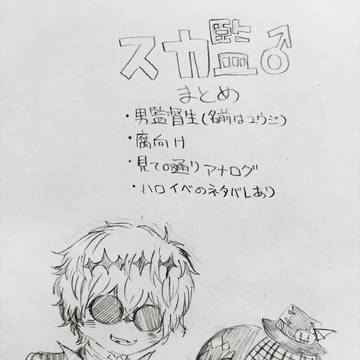 スカ監♂
まとめ
・男監督生(名前はユウジ)
・腐向け
・見ての通りアナログ
・ハロイベのネタバレあり